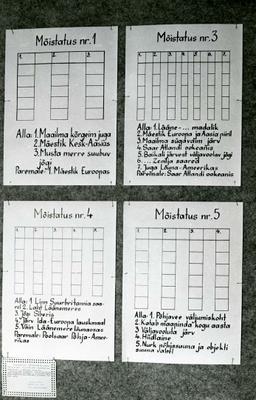 Mõistatus nr.1
1. 2. 3.
Alla: 1. Maailma kõrgeim juga
2. Mäestik Kesk-Aasias
3. Musta merre suubuv
jõgi
Paremale-1. Mäestik Euroopas
Mõistatus nr.3
1. 2. 3. 4. 5. 6. 7.
Alla: 1. Lääne-... madalik
2. Mäestik Euroopa ja Aasia piiril
3. Maailma sügavaim järv
4. Saar Atlandi ookeanis
5. Baikali järvest väljavoolav jõgi
6. ... Zemlja saared
7. Juga Lõuna-Ameerikas
Paremale: Saar Atlandi ookeanis
Mõistatus nr.4
1. 2. 3. 4. 5.
Alla: 1. Linn Suurbritannia saa-
rel 2. Laht Läänemeres
3. Jõgi Siberis
4. Järv Ida-Euroopa lauskmaal
5. Väin Läänemere lõunaosas
Paremale: Poolsaar Põhja-Amee-
rikas
Mõistatus nr.5
1. 2. 3. 4. 5.
Alla: 1. Põhjavee väljumiskoht
2. Katab maapinda kogu aasta
3. Väljavooluta järv
4. Hiidlaine
5. Nurk põhjasuuna ja objekti
suuna vahel